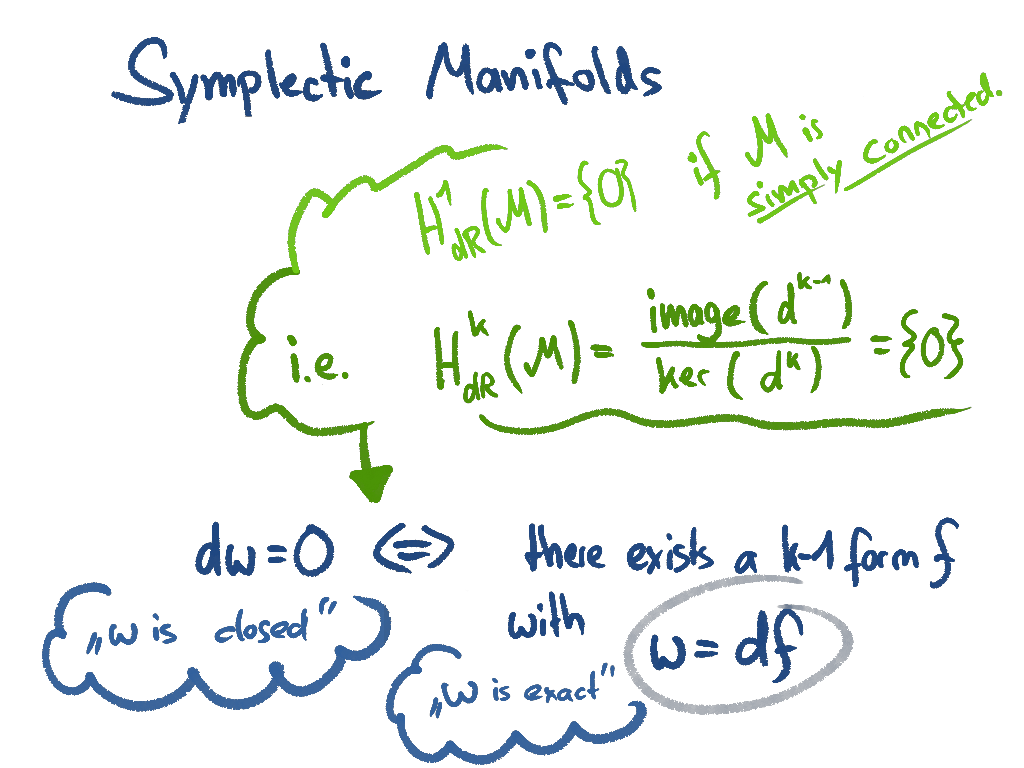 Symplectic Manifolds
H¹_dR(M)={0} if M is
simply connected.
i.e. H^k_dR(M) = image(d^{k-1}) / ker(d^k) = {0}
dω=0 <=> there exists a k-1 form f
„ω is closed" with ω = df
„ω is exact"